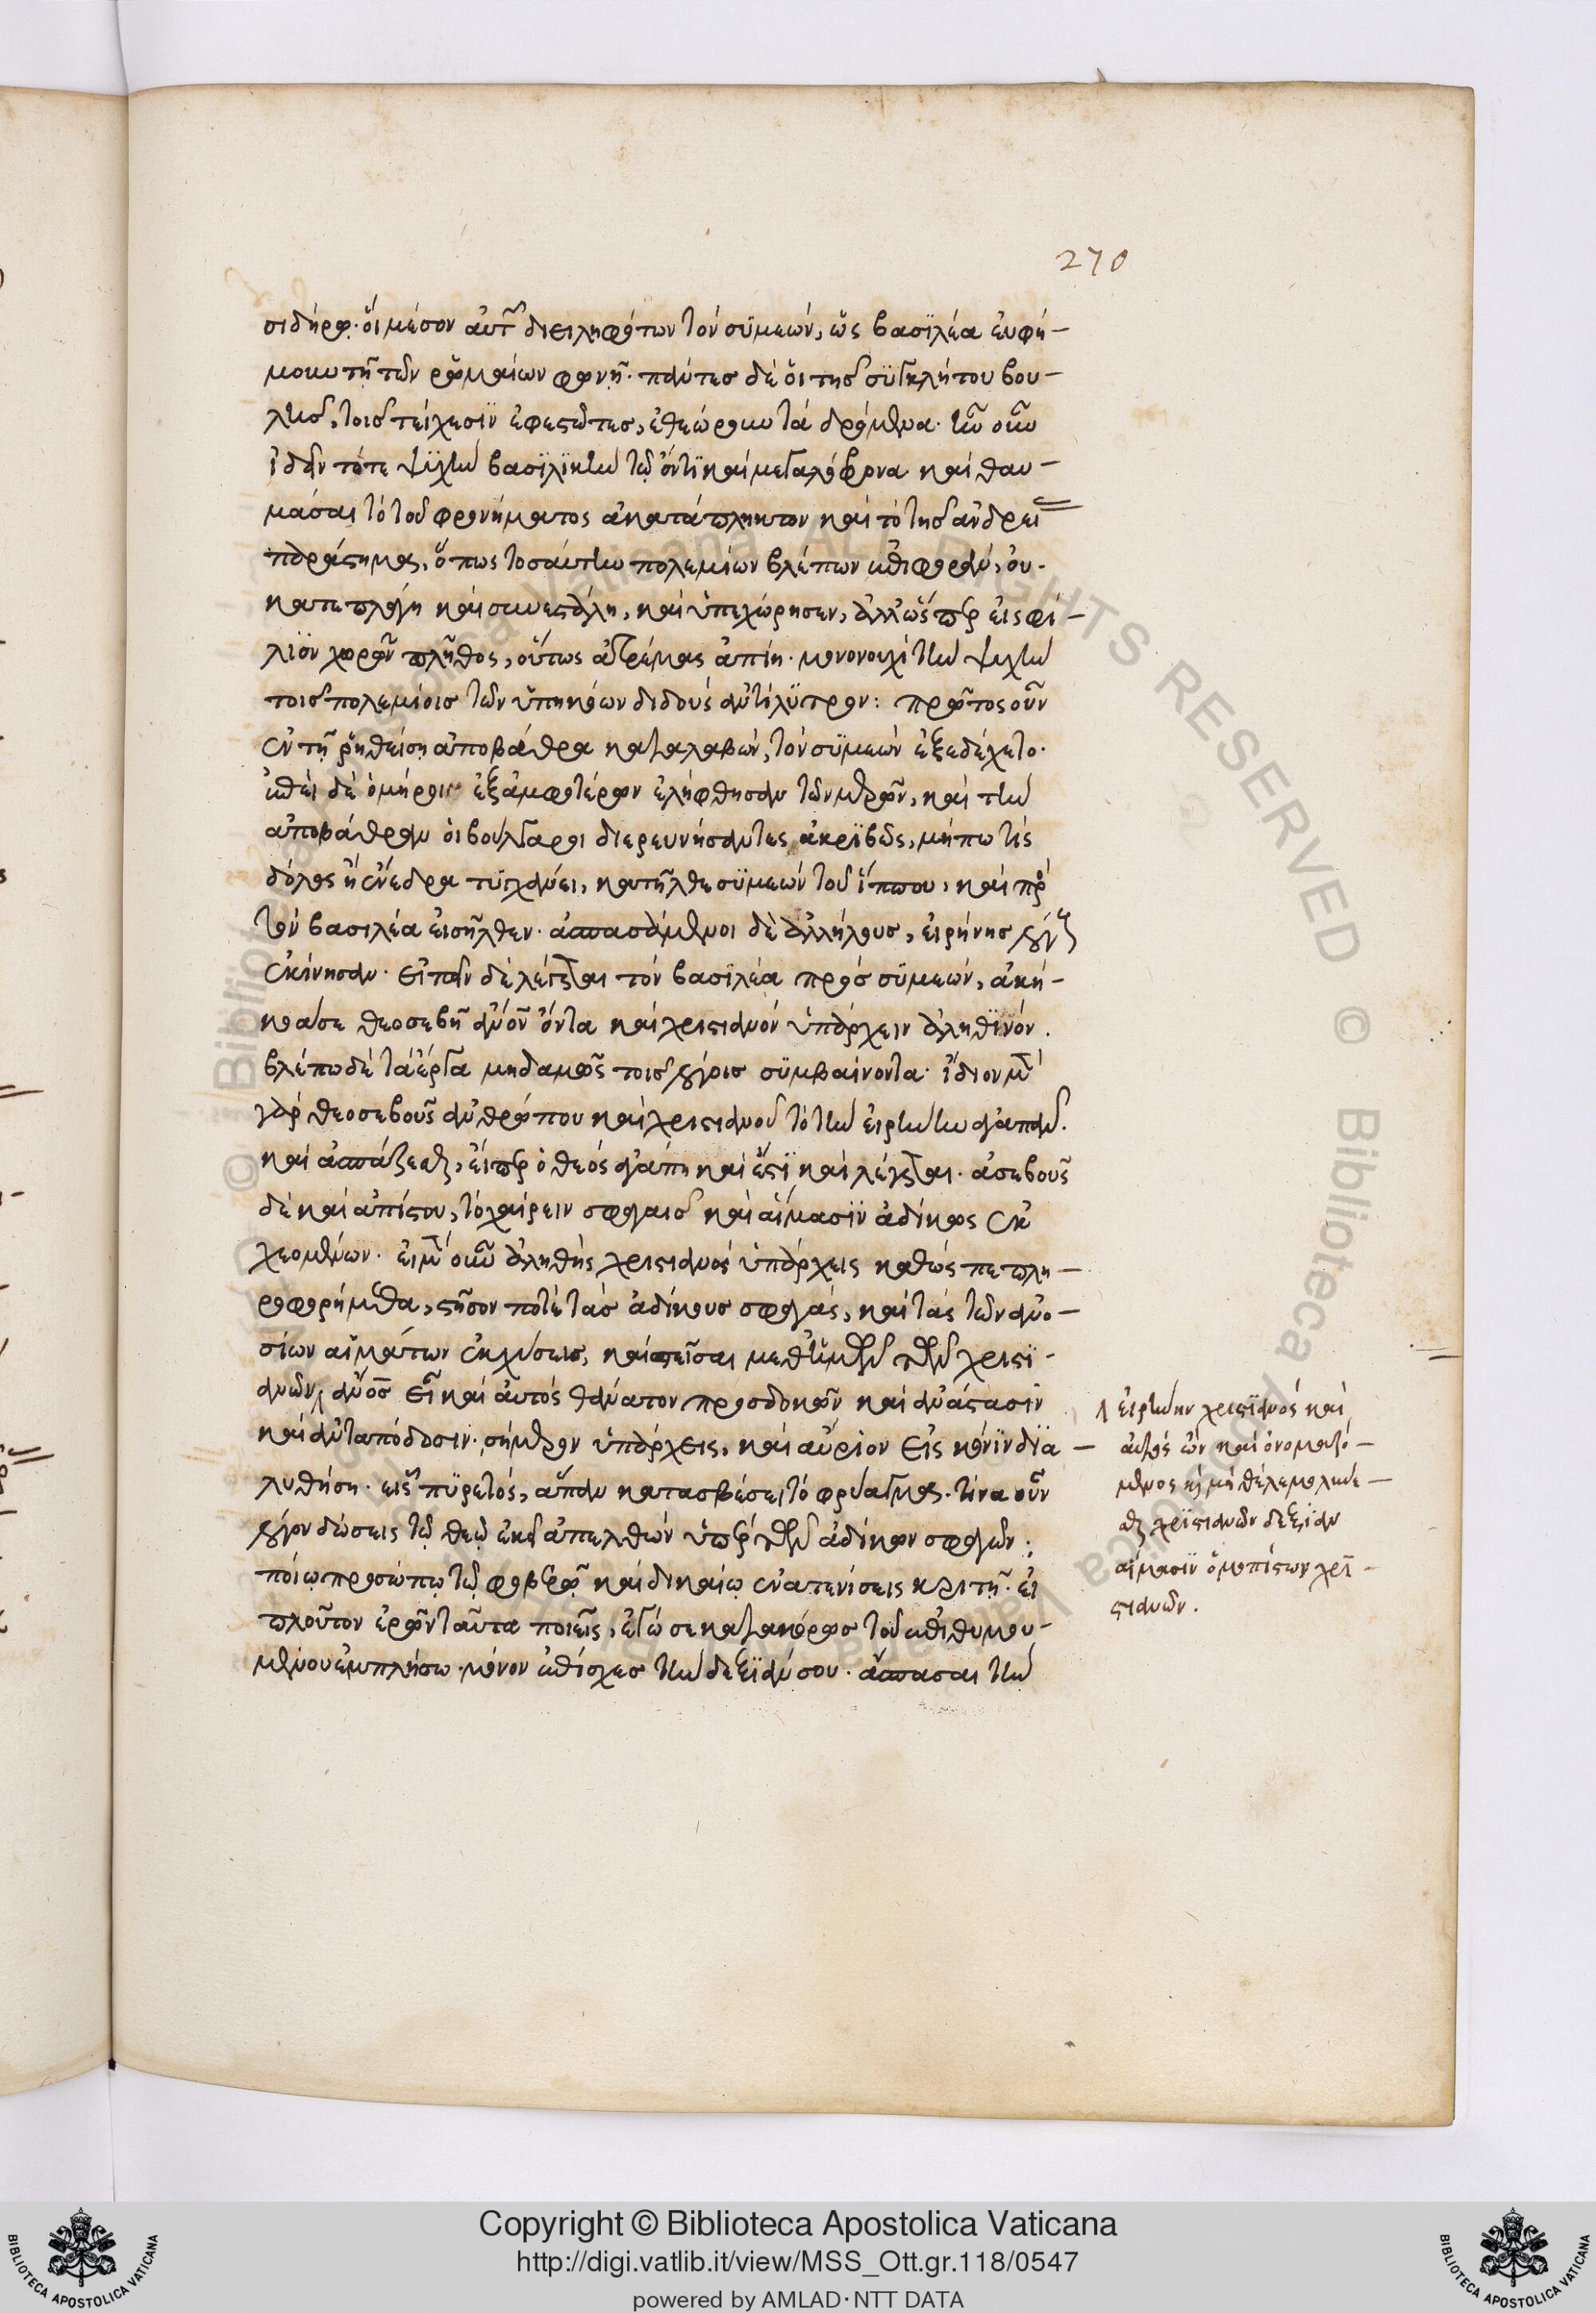 270
σιδήρῳ· οἱ μέσον αὐτῶν διειληφότων τὸν συμεών, ὡς βασιλέα εὐφή-
μουν τῇ τῶν ῥωμαίων φωνῇ· πάντες δὲ οἱ τῆς συγκλήτου βου-
λῆς, τοῖς τείχεσιν ἐφεστῶτες, ἐθεώρουν τὰ δρώμενα· ἦν οὖν
ἰδεῖν τότε ψυχὴν βασιλικὴν τῷ ὄντι καὶ μεγαλόφρονα καὶ θαυ-
μάσαι τὸ τοῦ φρονήματος ἀκατάπληκτον καὶ τὸ τῆς ἀνδρεί
παράστημα, ὅπως τοσαύτην πολεμίων βλέπων ἐπιφοράν, οὐ
κατεπλάγη καὶ συνεστάλη, καὶ ὑπεχώρησεν, ἀλλ' ὥσπερ εἰς φί-
λιον χωρῶν πλῆθος, οὕτως ἀτρέμας ἀπίῃ· μονονουχὶ τὴν ψυχὴν
τοῖς πολεμίοις τῶν ὑπηκόων διδοὺς ἀντίλυτρον: πρῶτος οὖν
ἐν τῇ ῥηθείσῃ ἀποβάθρᾳ καταλαβών, τὸν συμεὼν ἐξεδέχετο·
ἐπεὶ δὲ ὁμήροι ἐξ ἀμφοτέρων ἐλήφθησαν τῶν μερῶν, καὶ τὴν
ἀποβάθραν οἱ βούλγαροι διερευνήσαντες ἀκριβῶς, μήπω τίς
δόλος ἢ ἐνέδρα τυγχάνει, κατῆλθε συμεὼν τοῦ ἵππου, καὶ πρὸς
τὸν βασιλέα εἰσῆλθεν· ἀσπασάμενοι δὲ ἀλλήλους, εἰρήνης λόγους
ἐκίνησαν· εἰπεῖν δὲ λέγεται τὸν βασιλέα πρὸς συμεών, ἀκή-
κοά σε θεοσεβῆ ἄνον ὄντα καὶ χριστιανὸν ὑπάρχειν ἀληθινόν.
βλέπω δὲ τὰ ἔργα μηδαμῶς τοῖς λόγοις συμβαίνοντα· ἴδιον μὲν
γὰρ θεοσεβοῦς ἀνθρώπου καὶ χριστιανοῦ τὸ τὴν εἰρήνην ἀγαπᾶν.
καὶ ἀσπάζεσθαι, εἴπερ ὁ θεὸς ἀγάπη καὶ ἔστι καὶ λέγεται· ἀσεβοῦς
δὲ καὶ ἀπίστου, τὸ χαίρειν σφαγαῖς καὶ αἵμασιν ἀδίκως ἐκ
χεομένων· εἰ μὲν οὖν ἀληθὴς χριστιανὸς ὑπάρχεις καθὼς πεπλη-
ροφορήμεθα, στῆσον ποτὲ τὰς ἀδίκους σφαγάς, καὶ τὰς τῶν ἀνο-
σίων αἱμάτων ἐκχύσεις, καὶ σπεῖσαι μεθ' ἡμῶν τῶν χριστι-
ανῶν, ἄνος εἶ καὶ αὐτὸς θάνατον προσδοκῶν καὶ ἀνάστασιν
καὶ ἀνταπόδοσιν· σήμερον ὑπάρχεις, καὶ αὔριον εἰς κόνιν δια-
λυθήσῃ· εἷς πυρετός, ἅπαν κατασβέσει τὸ φρύαγμα. τίνα οὖν
λόγον δώσεις τῷ θεῷ ἐκεῖ ἀπελθὼν ὑπὲρ τῶν ἀδίκων σφαγῶν;
ποίῳ προσώπῳ τῷ φοβερῷ καὶ δικαίῳ ἐνατενίσεις κριτῇ· εἰ
πλούτου ἐρῶν ταῦτα ποιεῖς, ἐγώ σε κατακόρως τοῦ ἐπιθυμου-
μένου ἐμπλήσω· μόνον ἐπίσχες τὴν δεξιάν σου· ἄσπασαι τὴν
εἰρήνην χριστιανὸς καὶ
αὐτὸς ὢν καὶ ὀνομαζό-
μενος εἰ μὴ θέλε μολύνε-
σθαι χριστιανῶν δεξιὰν
αἵμασιν ὁμοπίστων χρι-
στιανῶν.
Copyright © Biblioteca Apostolica Vaticana
http://digi.vatlib.it/view/MSS_Ott.gr.118/0547
powered by AMLAD·NTT DATA
BIBLIOTECA APOSTOLICA VATICANA
BIBLIOTECA APOSTOLICA VATICANA